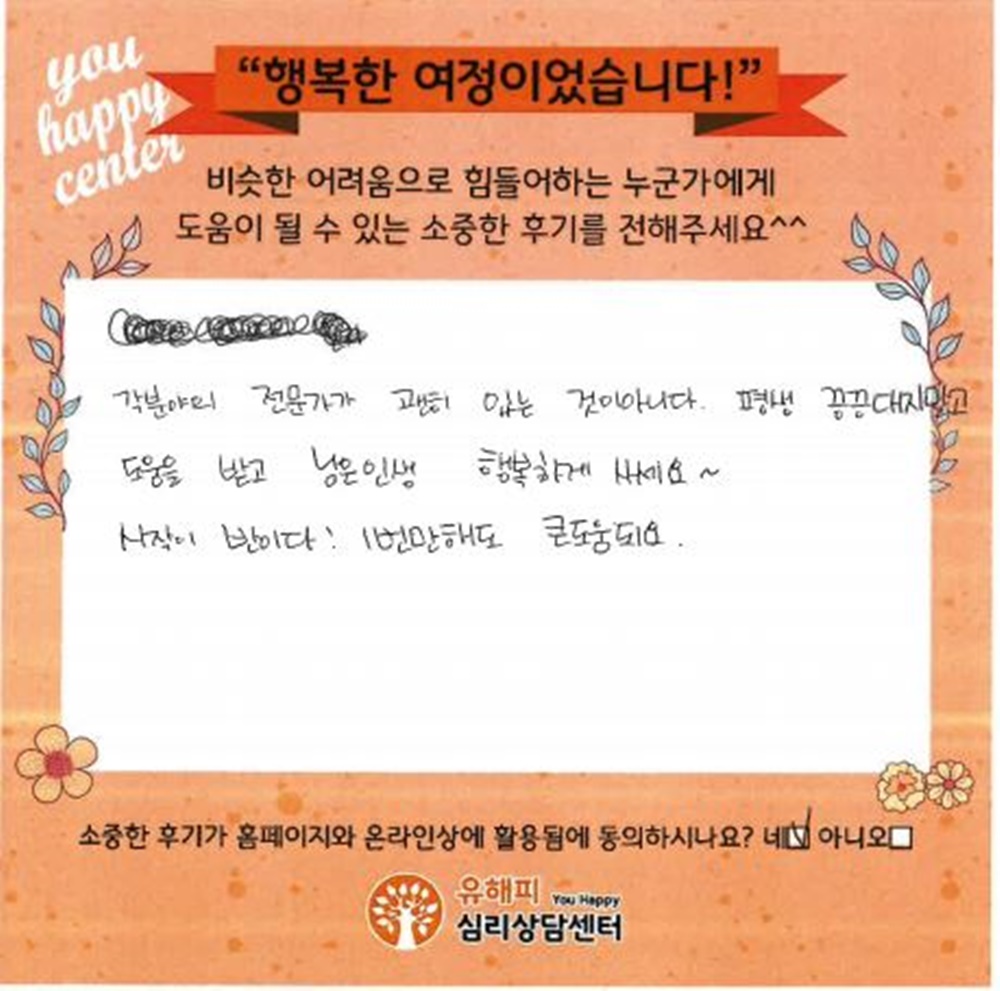 you
happy
center
“행복한 여정이었습니다!”
비슷한 어려움으로 힘들어하는 누군가에게
도움이 될 수 있는 소중한 후기를 전해주세요^^
각분야의 전문가가 괜히 있는 것이아니다. 평생 끙끙대지말고
도움을 받고 남은인생 행복하게 사세요~
시작이 반이다! 1번만해도 큰도움되요.
소중한 후기가 홈페이지와 온라인상에 활용됨에 동의하시나요? 네☑ 아니오☐
유해피 You Happy
심리상담센터